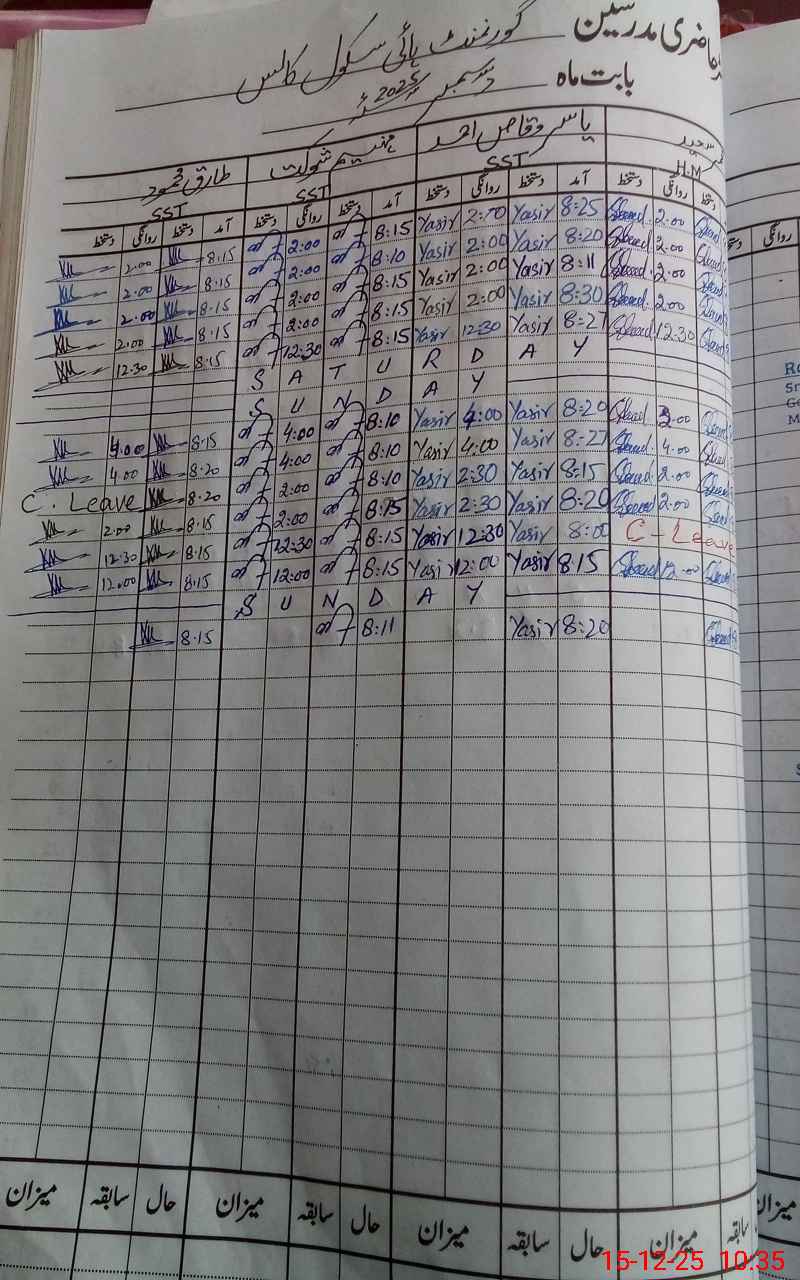 حاضری مدرسین گورنمنٹ ہائی سکول
بابت ماہ دسمبر 2025
یاسر وقاص احمد شوکت طارق محمود
H.M SST SST SST
دستخط روانگی دستخط آمد روانگی دستخط آمد دستخط روانگی دستخط آمد دستخط روانگی دستخط روانگی
2.00 8:25 Yasir 2:00 Yasir 8:15 2:00 8.15 2.00
2.00 8:20 Yasir 2:00 Yasir 8:10 2:00 8.15 2.00
2.00 8:11 Yasir 2:00 Yasir 8:15 2:00 8.15 2.00
2.00 8:30 Yasir 2:00 Yasir 8:15 2:00 8.15 2.00
12.30 8:27 Yasir 12:30 Yasir 8:15 12:30 8.15 12.30
S A T U R D A Y
S U N D A Y
3.00 8:20 Yasir 4:00 Yasir 8:10 4:00 8.15 4.00
4.00 8:27 Yasir 4:00 Yasir 8:10 4:00 8.20 4.00
2.00 8:15 Yasir 2:30 Yasir 8:10 2:00 8.20 C. Leave
2.00 8:20 Yasir 2:30 Yasir 8:15 2:00 8.15 2.00
C - Leave 8:00 Yasir 12:30 Yasir 8:15 12:30 8.15 12.30
12.00 8:15 Yasir 12:00 Yasir 8:15 12:00 8.15 12.00
S U N D A Y
8:20 Yasir 8:11 8.15
میزان سابقہ حال میزان سابقہ حال میزان سابقہ حال میزان سابقہ میزان
15-12-25 10:35